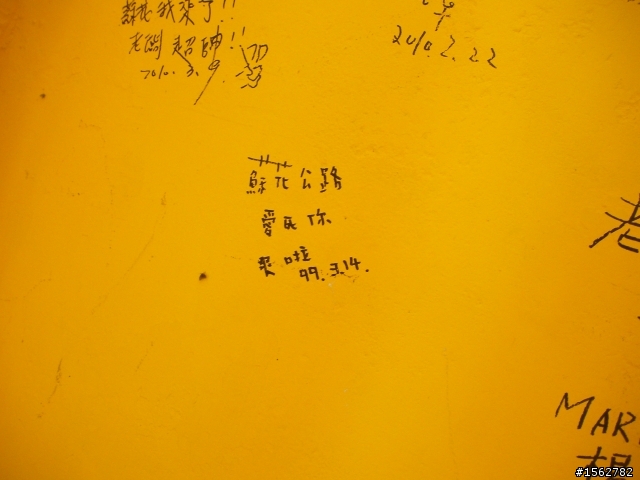 蘇花我來了!!
老闆超帥!!
2010.3.9.
2010.2.22
蘇花公路
愛死你
爽啦
99.3.14.
老
MAR
胡
#1562782